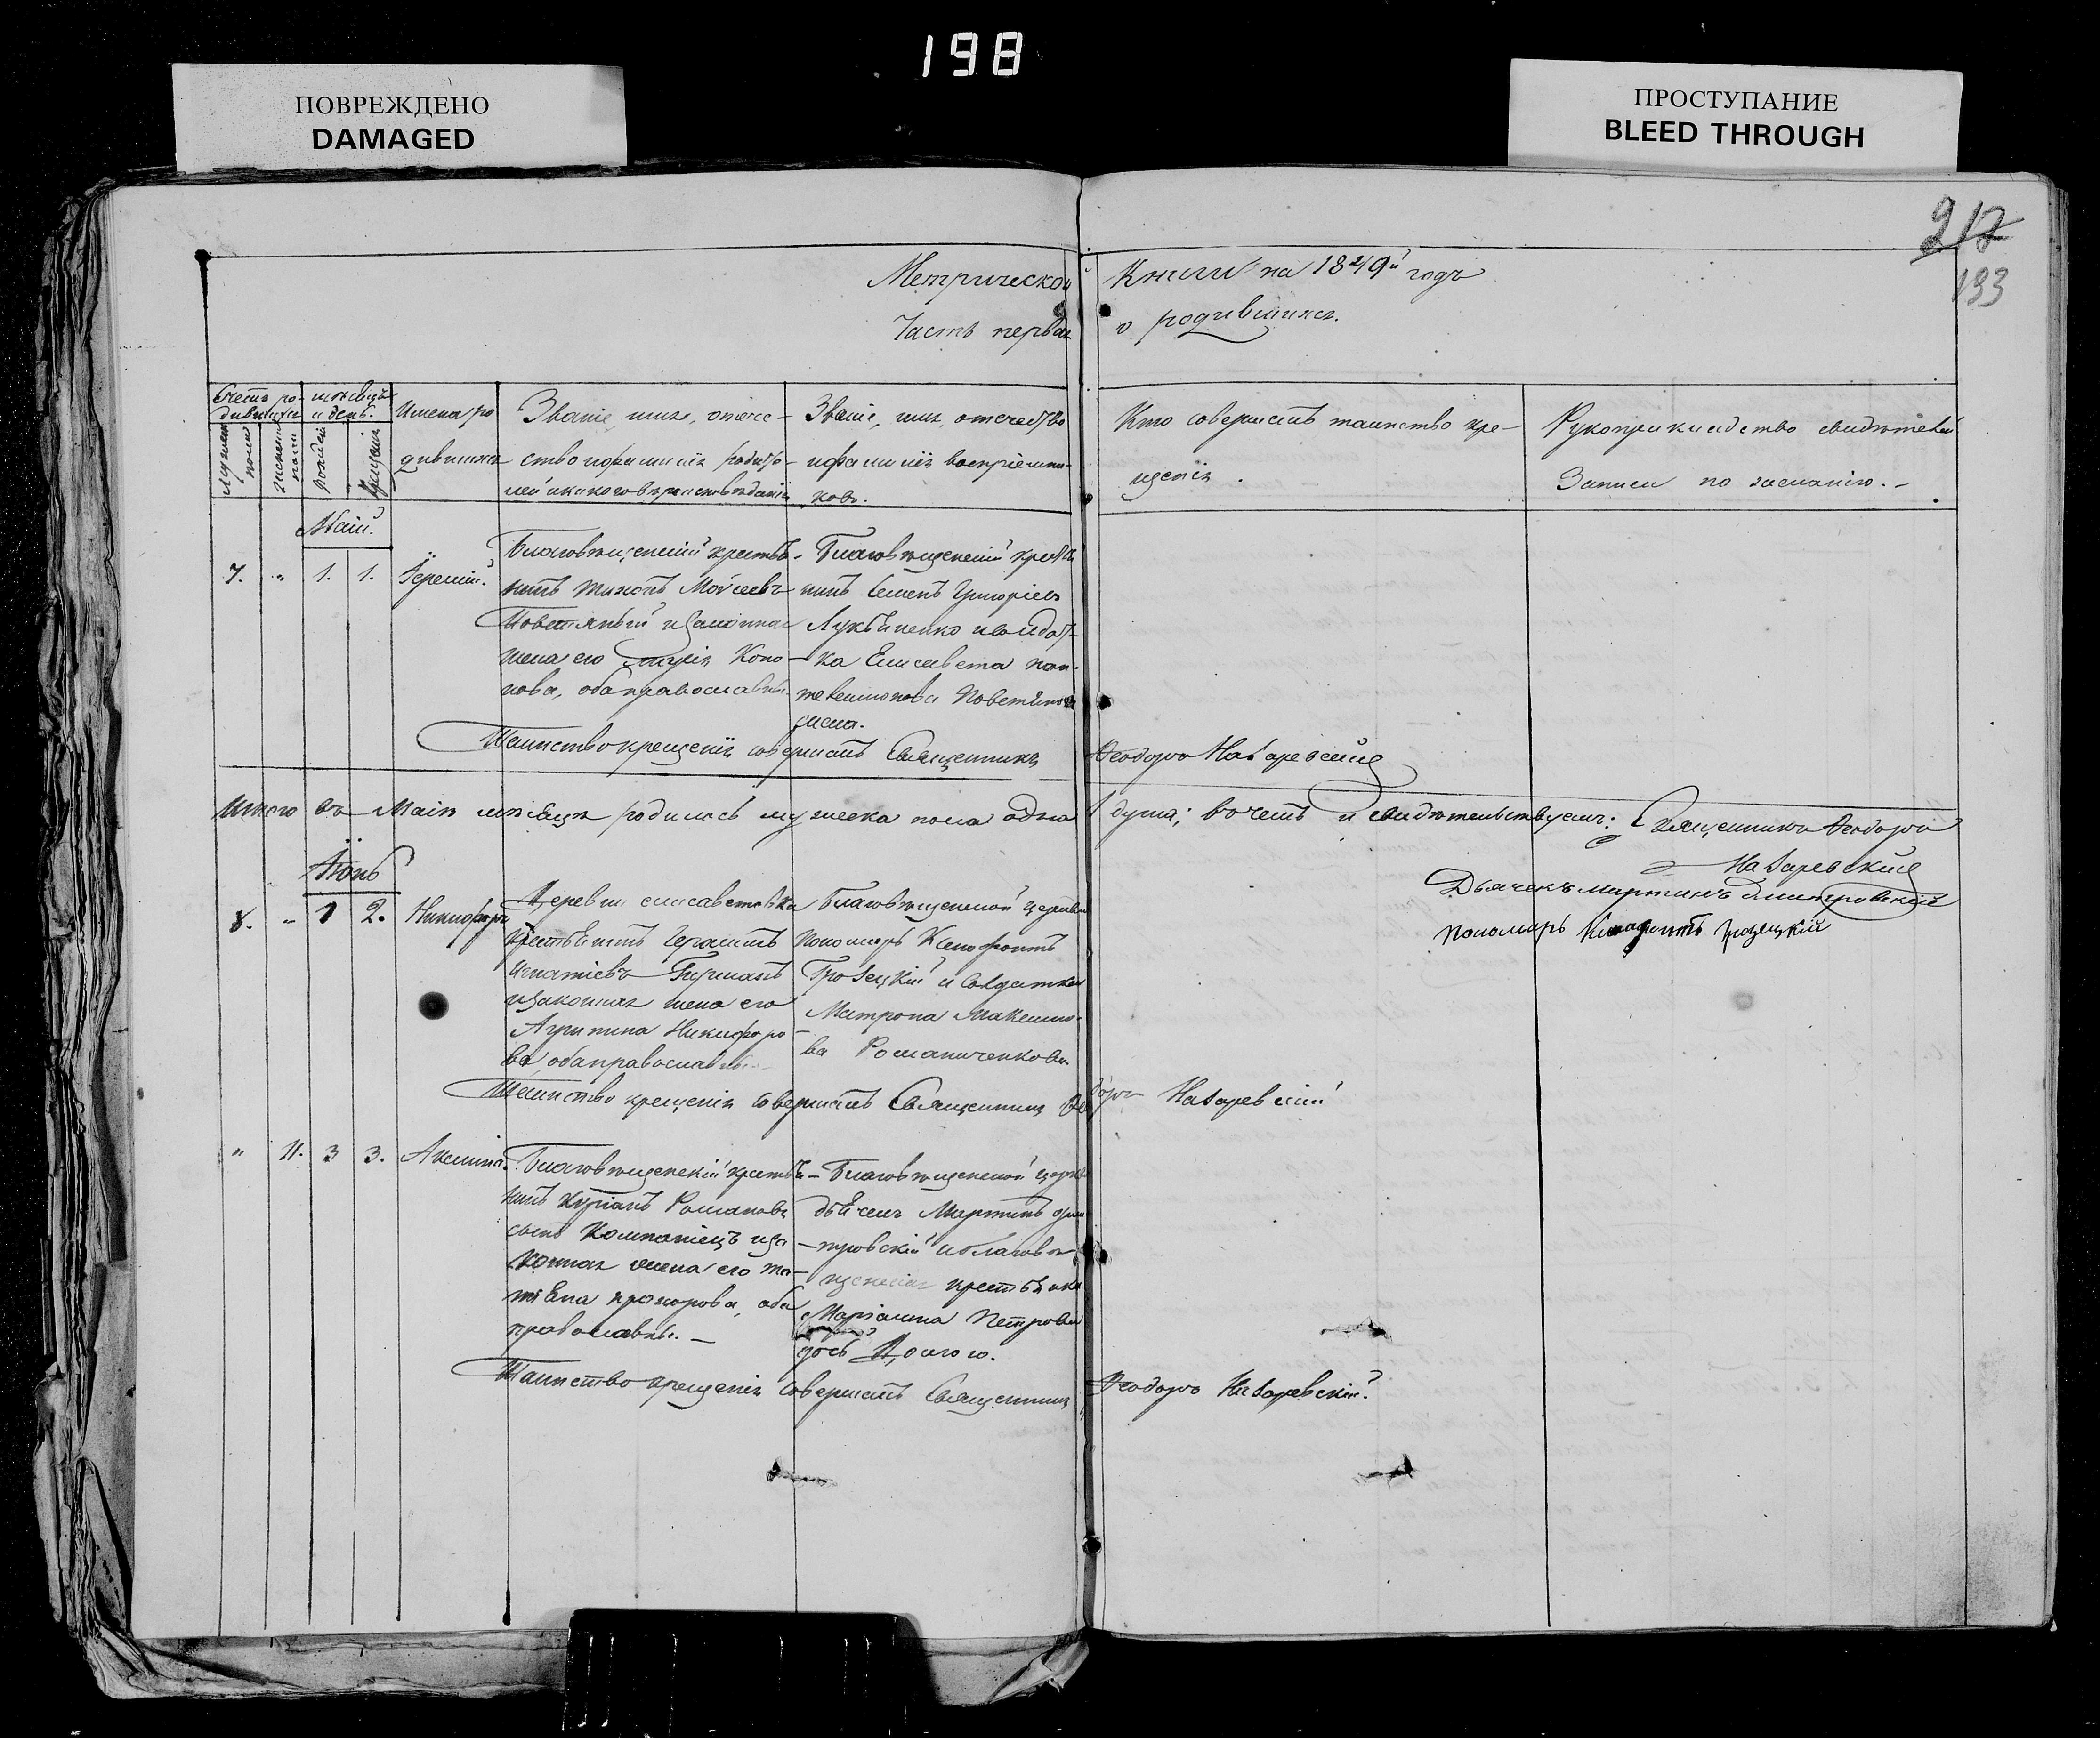 198
ПОВРЕЖДЕНО
DAMAGED
ПРОСТУПАНИЕ
BLEED THROUGH
217
193
Метрической Книги на 1849й годъ
Часть первая о родившихся.
Счетъ родившихся
Мужеска пола
Женска пола
мѣсяцъ и день.
рожденія
Крещенія
Имена родившихся
Званіе, имя, отечество и фамилія родителей и какого вѣроисповѣданія
Званіе, имя, отечество и фамилія воспріемниковъ.
Кто совершалъ таинство крещенія.
Рукоприкладство свидѣтелей Записи по желанію.
Маій.
7. " 1. 1. Іеремій.
Благовѣщенскій крестья-
нинъ Тихонъ Моѵсеевъ
и законная
жена его Коно-
нова, оба православны.
Благовѣщенскій крестья
нинъ Семенъ Григоріевъ
и солдат-
ка Елисавета пан-
телеимонова
жена.
Таинство крещенія совершалъ Священникъ Ѳеодоръ Назаревскій
Итого въ Маіѣ мѣсяцѣ родилась мужеска пола одна 1 душа; въ чемъ и свидѣтельствуемъ: Священникъ Ѳеодоръ
Назаревскій
Дьячекъ Мартинъ Дмитровскій
пономарь Ксенофонтъ Грозецкій
Іюнь
8. " 1 2. Никифоръ
Деревни елисаветовка
крестьянинъ Герасимъ
игнатіевъ
и законная жена его
Агрипина Никифоро-
ва, оба православны.
Благовѣщенской церкви
пономарь Ксенофонтъ
Грозецкій и Солдатка
Матрона Максимо-
ва Романиченкова.
Таинство крещенія совершалъ Священникъ Ѳеодоръ Назаревскій
" 11. 3 3. Акилина.
Благовѣщенскій крестья-
нинъ Купріанъ Романовъ
сынъ Компаніецъ и за
конная жена его та-
тіяна прохорова, оба
православны.
Благовѣщенской церкви
дьячекъ Мартинъ дми
тровскій и благовѣ
щенская крестьянка
Маріанна Петрова
дочь Долгого.
Таинство крещенія совершалъ Священникъ Ѳеодоръ Назаревскій